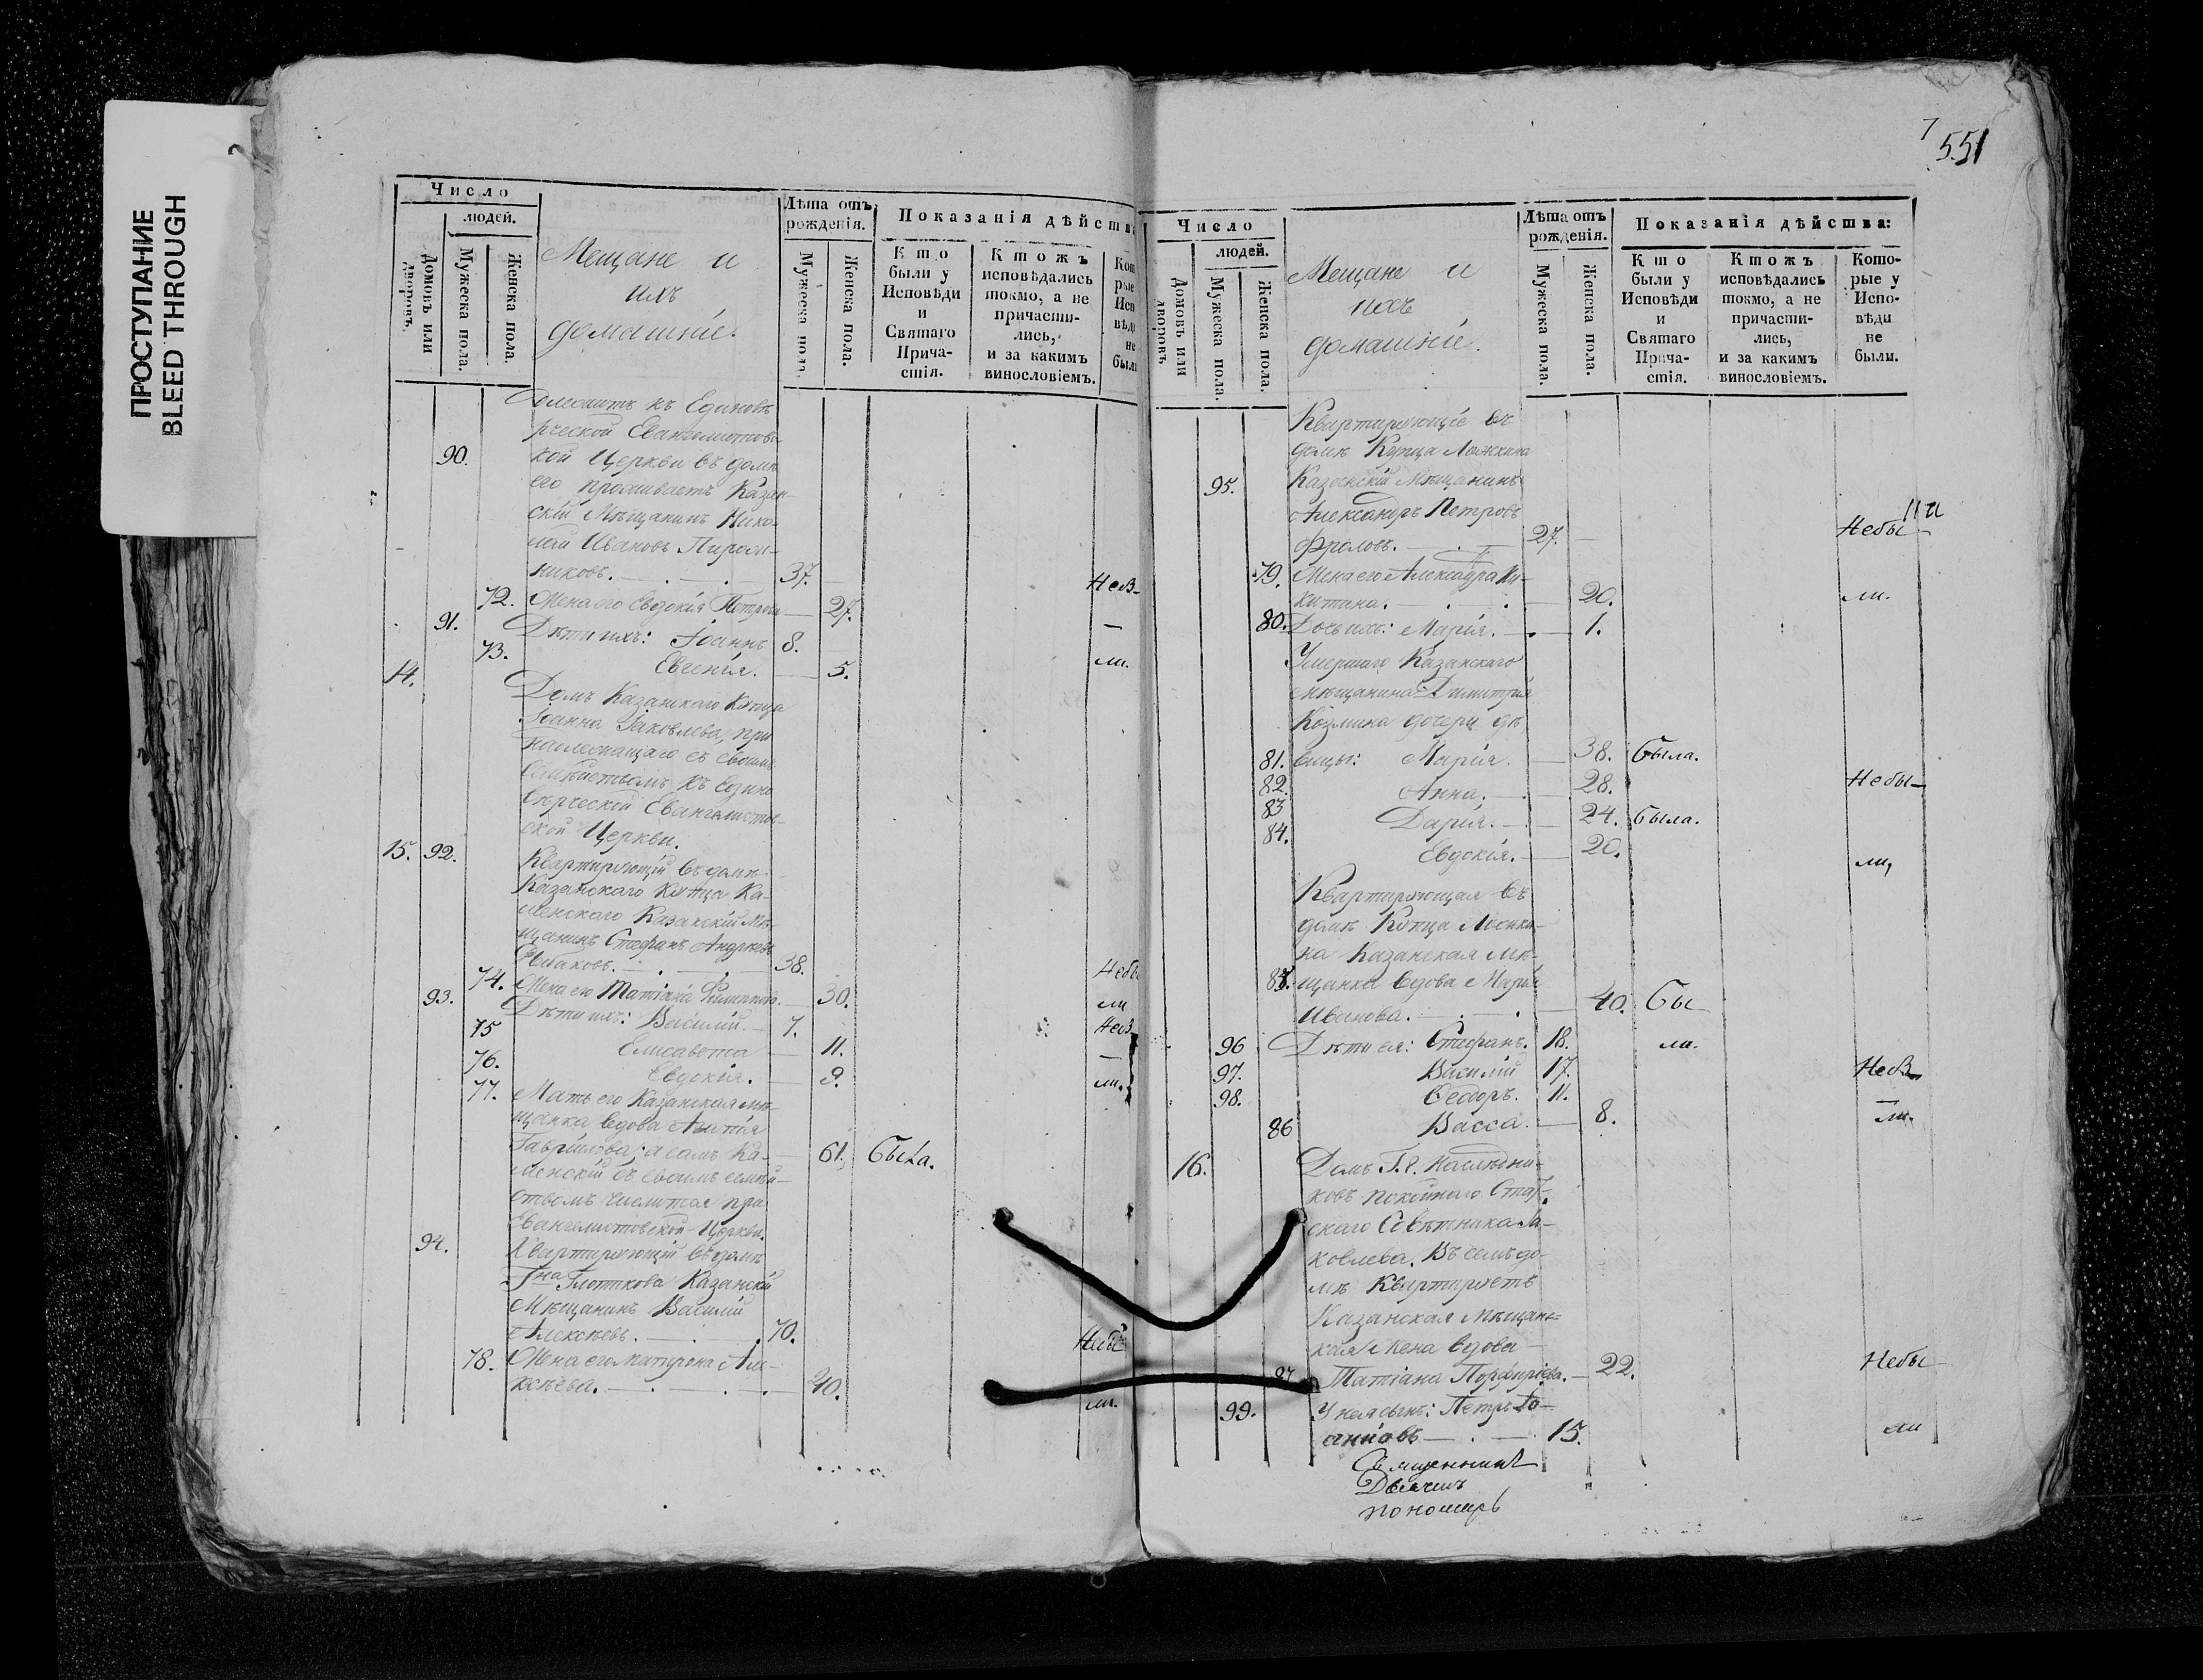 ПРОСТУПАНИЕ
BLEED THROUGH
7
551
Число
людей.
Домовъ или дворовъ.
Мужеска пола.
Женска пола.
Мещане и
ихъ
домашніе.
Лѣта отъ рожденія.
Мужеска пола.
Женска пола.
Показанія дѣйств
Кто были у Исповѣди и Святаго Причастія.
Ктожъ исповѣдались токмо, а не причастились, и за какимъ винословіемъ.
Кот рые Исп вѣди не были
кой Церкви въ домѣ
90.
его проживаетъ Казан-
скій Мѣщанинъ Нико-
лай Ивановъ
никовъ. 37. Нев-
72. Жена его Евдокія Петрова 27.
91. Дѣти ихъ: Іоаннъ 8. —
73. Евгенія. 5. ли.
14. Домъ Казанскаго Купца
Іоанна Іаковлева, при
надлежащаго съ своимъ
семѣйствомъ къ Едино
вѣрческой Евангелистов-
ской Церкви.
15. 92. Квартирующій въ домѣ
Казанскаго Купца Ка-
менскаго Казанскій Мѣ-
щанинъ Стефанъ Андреевъ
38. Небы
74. Жена его Татіана 30. ли
93. Дѣти ихъ: Василій 7. Нев
75 Елисавета 11. —
76. Евдокія. 9. ли.
77. Мать его Казанская мѣ-
щанка вдова Агапія
Гаврилова; а самъ Ка- 61. Была.
менскій съ своимъ семѣй-
ствомъ числится при
Евангелистовской Церкви.
94. Квартирующій въ домѣ
Гна Плотникова Казанскій
Мѣщанинъ Василій
Алексѣевъ. 70. Небы
78. Жена его Матрона Але-
ксѣева. 40. ли.
Число
людей.
Домовъ или дворовъ.
Мужеска пола.
Женска пола.
Мещане и
ихъ
домашніе.
Лѣта отъ рожденія.
Мужеска пола.
Женска пола.
Показанія дѣйства:
Кто были у Исповѣди и Святаго Причастія.
Ктожъ исповѣдались токмо, а не причастились, и за какимъ винословіемъ.
Которые у Исповѣди не были.
Квартирующіе въ
домѣ Купца Ложкина
95. Казанскій Мѣщанинъ
Александръ Петровъ
Фроловъ. 27. Небы
79. Жена его Александра Ни-
китина. 20. ли.
80. Дочь ихъ: Марія. 1.
Умершаго Казанскаго
мѣщанина Димитрія
Козмина дочери дѣ
81. вицы: Марія. 38. была.
82. Анна. 28. Небы-
83 Дарія. 24. была.
84. Евдокія. 20. ли,
Квартирующая въ
домѣ Купца Ложки-
на Казанская мѣ-
85. щанка вдова Марія
Иванова. 40. Бы
96 Дѣти ея: Стефанъ. 18. ли.
97. Василій 17. Нев
98. Ѳеодоръ. 11. —
86 Васса. 8. ли.
16. Домъ Г.г. Наслѣдни-
ковъ покойнаго Стат-
скаго Совѣтника Іа-
ковлева. Въ семъ до-
мѣ Квартируетъ
Казанская Мѣщанс-
кая Жена вдова
87 Татіана Порфиріева. 22. Небы
99. У нея сынъ: Петръ Іо-
анновъ 15. ли
Священникъ
Дьячекъ
пономарь